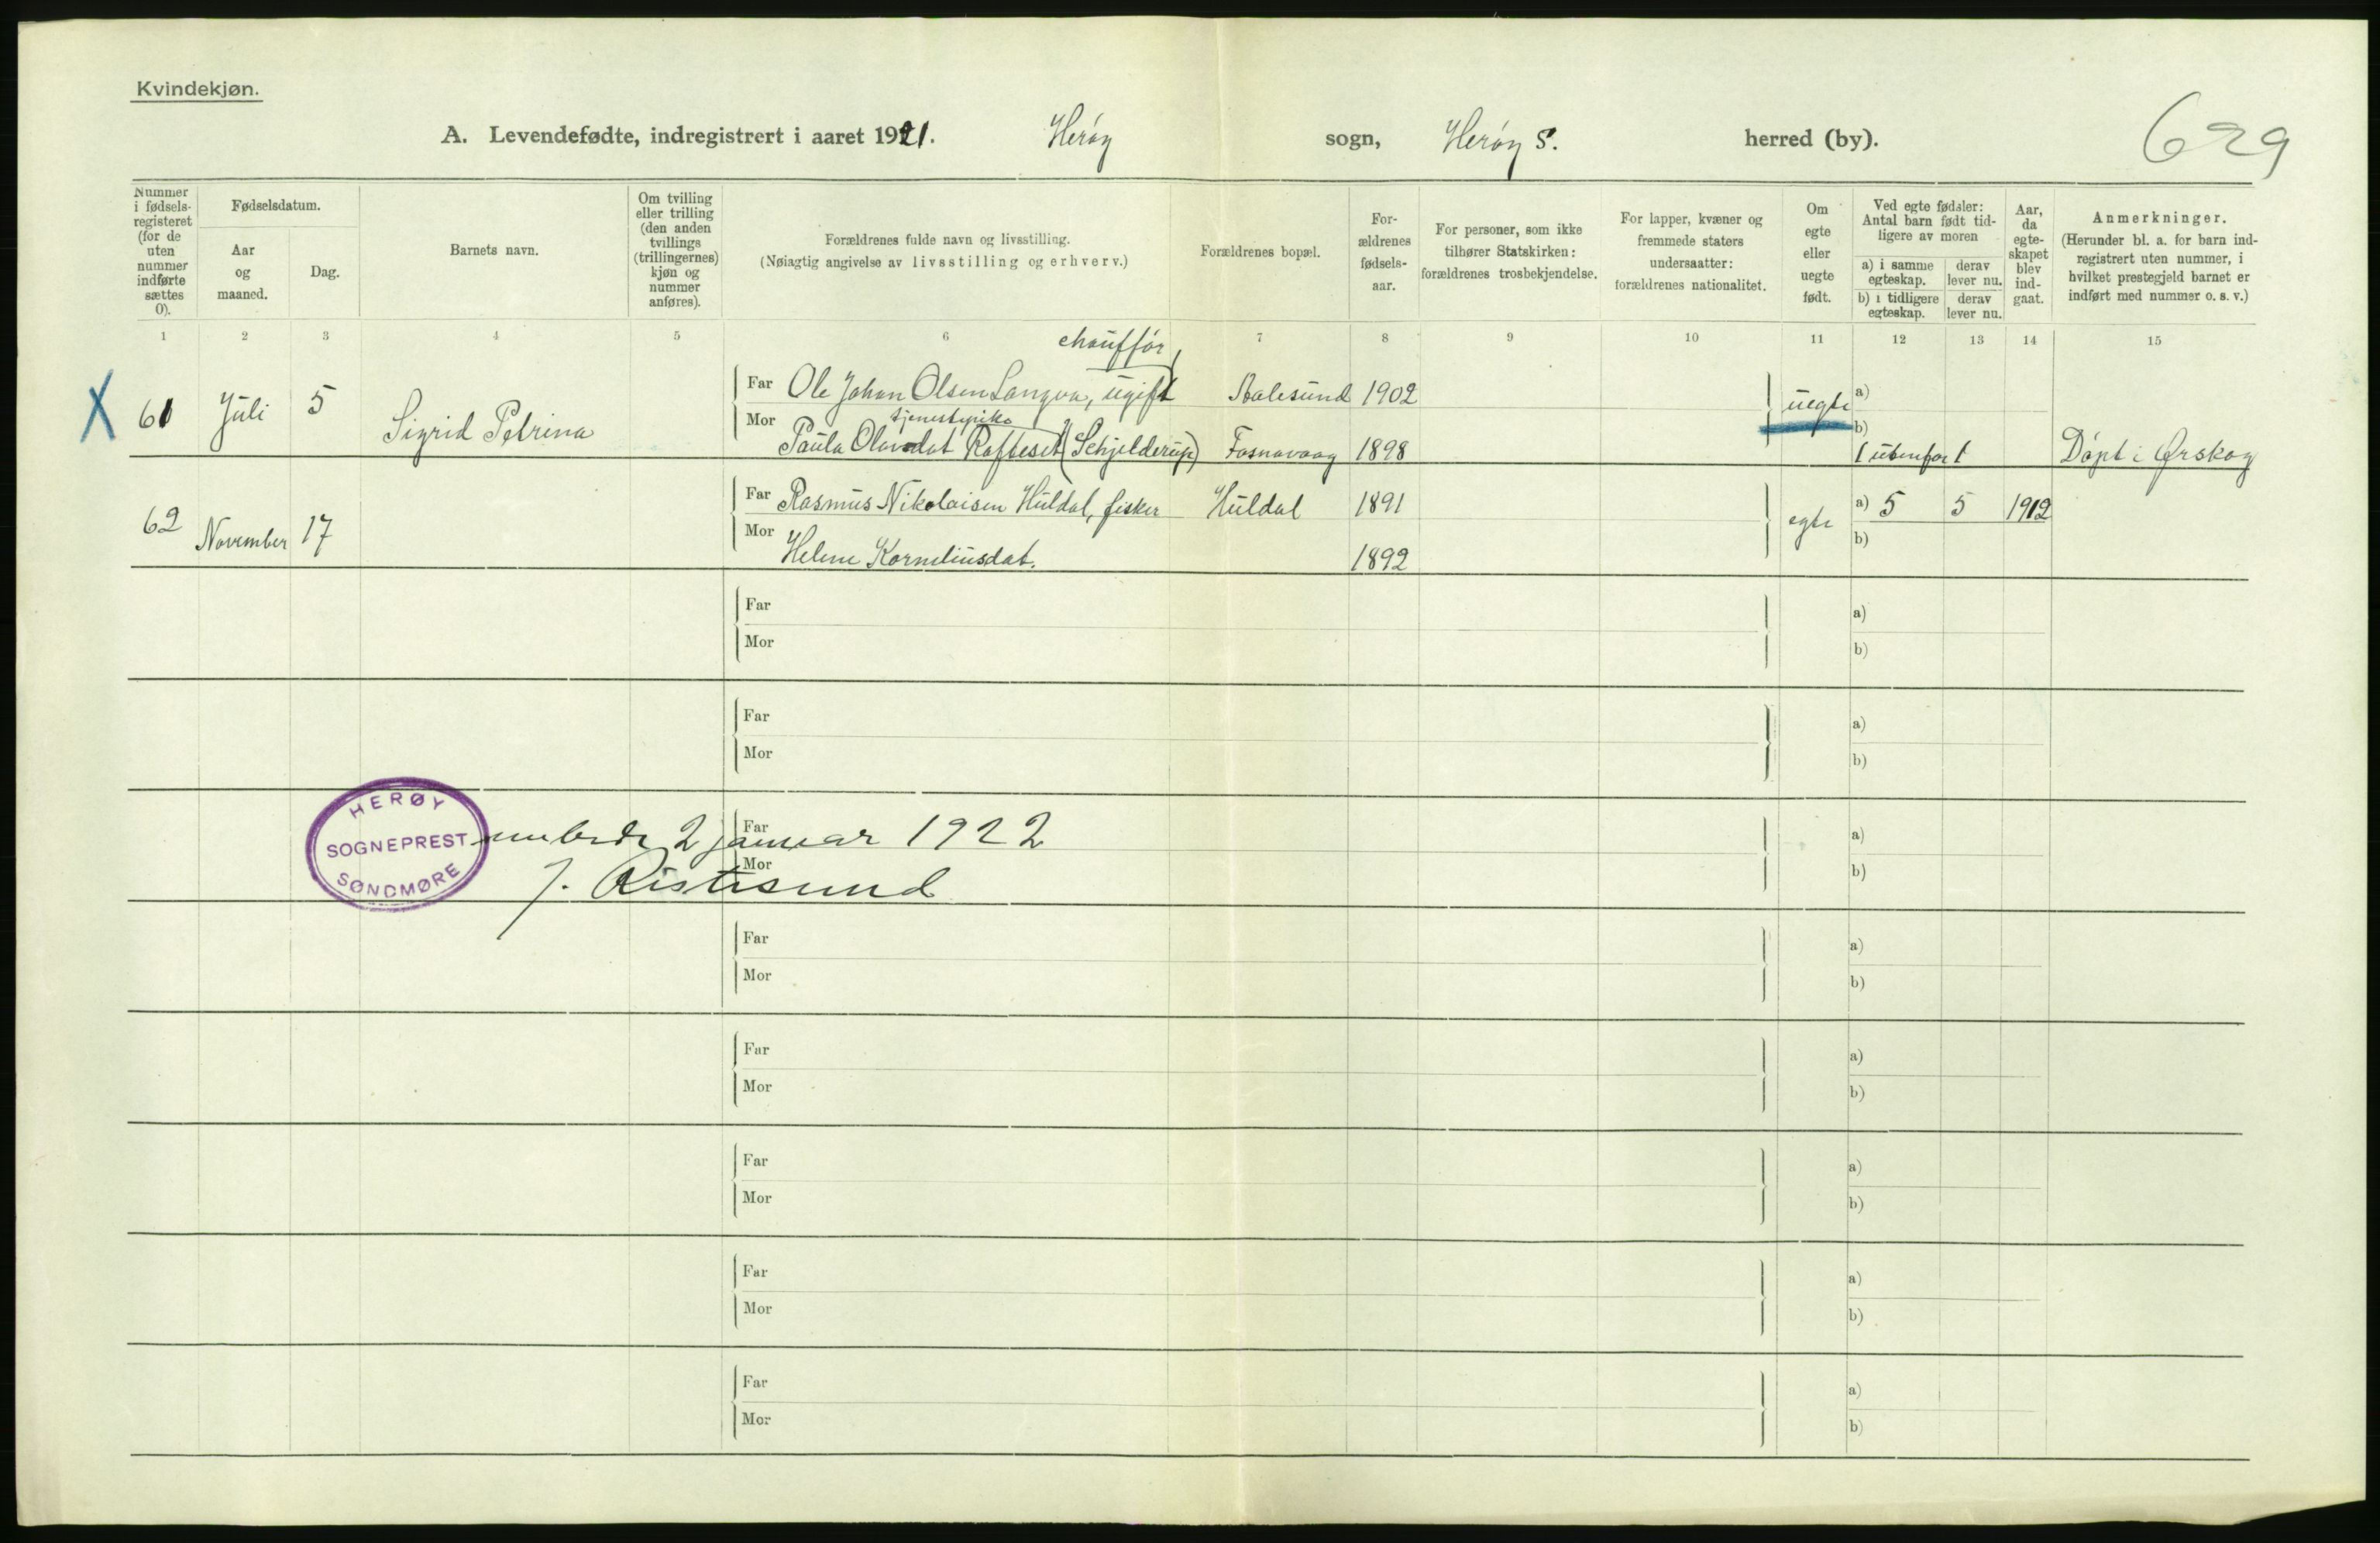 Kvindekjøn.
A. Levendefødte, indregistrert i aaret 1921. Herøy sogn, Herøy S. herred (by).
629
Nummer i fødsels-registeret (for de uten nummer indførte sættes 0).
Fødselsdatum.
Aar og maaned.
Dag.
Barnets navn.
Om tvilling eller trilling (den anden tvillings (trillingernes) kjøn og nummer anføres).
Forældrenes fulde navn og livsstilling.
(Nøiagtig angivelse av livsstilling og erhverv.)
Forældrenes bopæl.
For-ældrenes fødsels-aar.
For personer, som ikke tilhører Statskirken: forældrenes trosbekjendelse.
For lapper, kvæner og fremmede staters undersaatter: forældrenes nationalitet.
Om egte eller uegte født.
Ved egte fødsler: Antal barn født tid-ligere av moren
a) i samme egteskap.
derav lever nu.
b) i tidligere egteskap.
derav lever nu.
Aar, da egte-skapet blev ind-gaat.
Anmerkninger.
(Herunder bl. a. for barn ind-registrert uten nummer, i hvilket prestegjeld barnet er indført med nummer o. s. v.)
1 2 3 4 5 6 7 8 9 10 11 12 13 14 15
chauffør
X 61 Juli 5 Sigrid Petrina
Far Ole Johan Olsen Langva, ugift Aalesund 1902 uegte a)
tjenestepike
Mor Paula Olavdat Rafteset (Schjelderup) Fosnavaag 1898 b) 1 utenfor 1 Døpt i Ørskog
62 November 17
Far Rasmus Nikolaisen Huldal, fisker Huldal 1891 egte a) 5 5 1912
Mor Helene Korneliusdat. 1892 b)
Far a)
Mor b)
Far a)
Mor b)
HERØY
SOGNEPREST
SØNDMØRE
2 januar 1922
Far a)
Mor b)
J.
Far a)
Mor b)
Far a)
Mor b)
Far a)
Mor b)
Far a)
Mor b)
Far a)
Mor b)